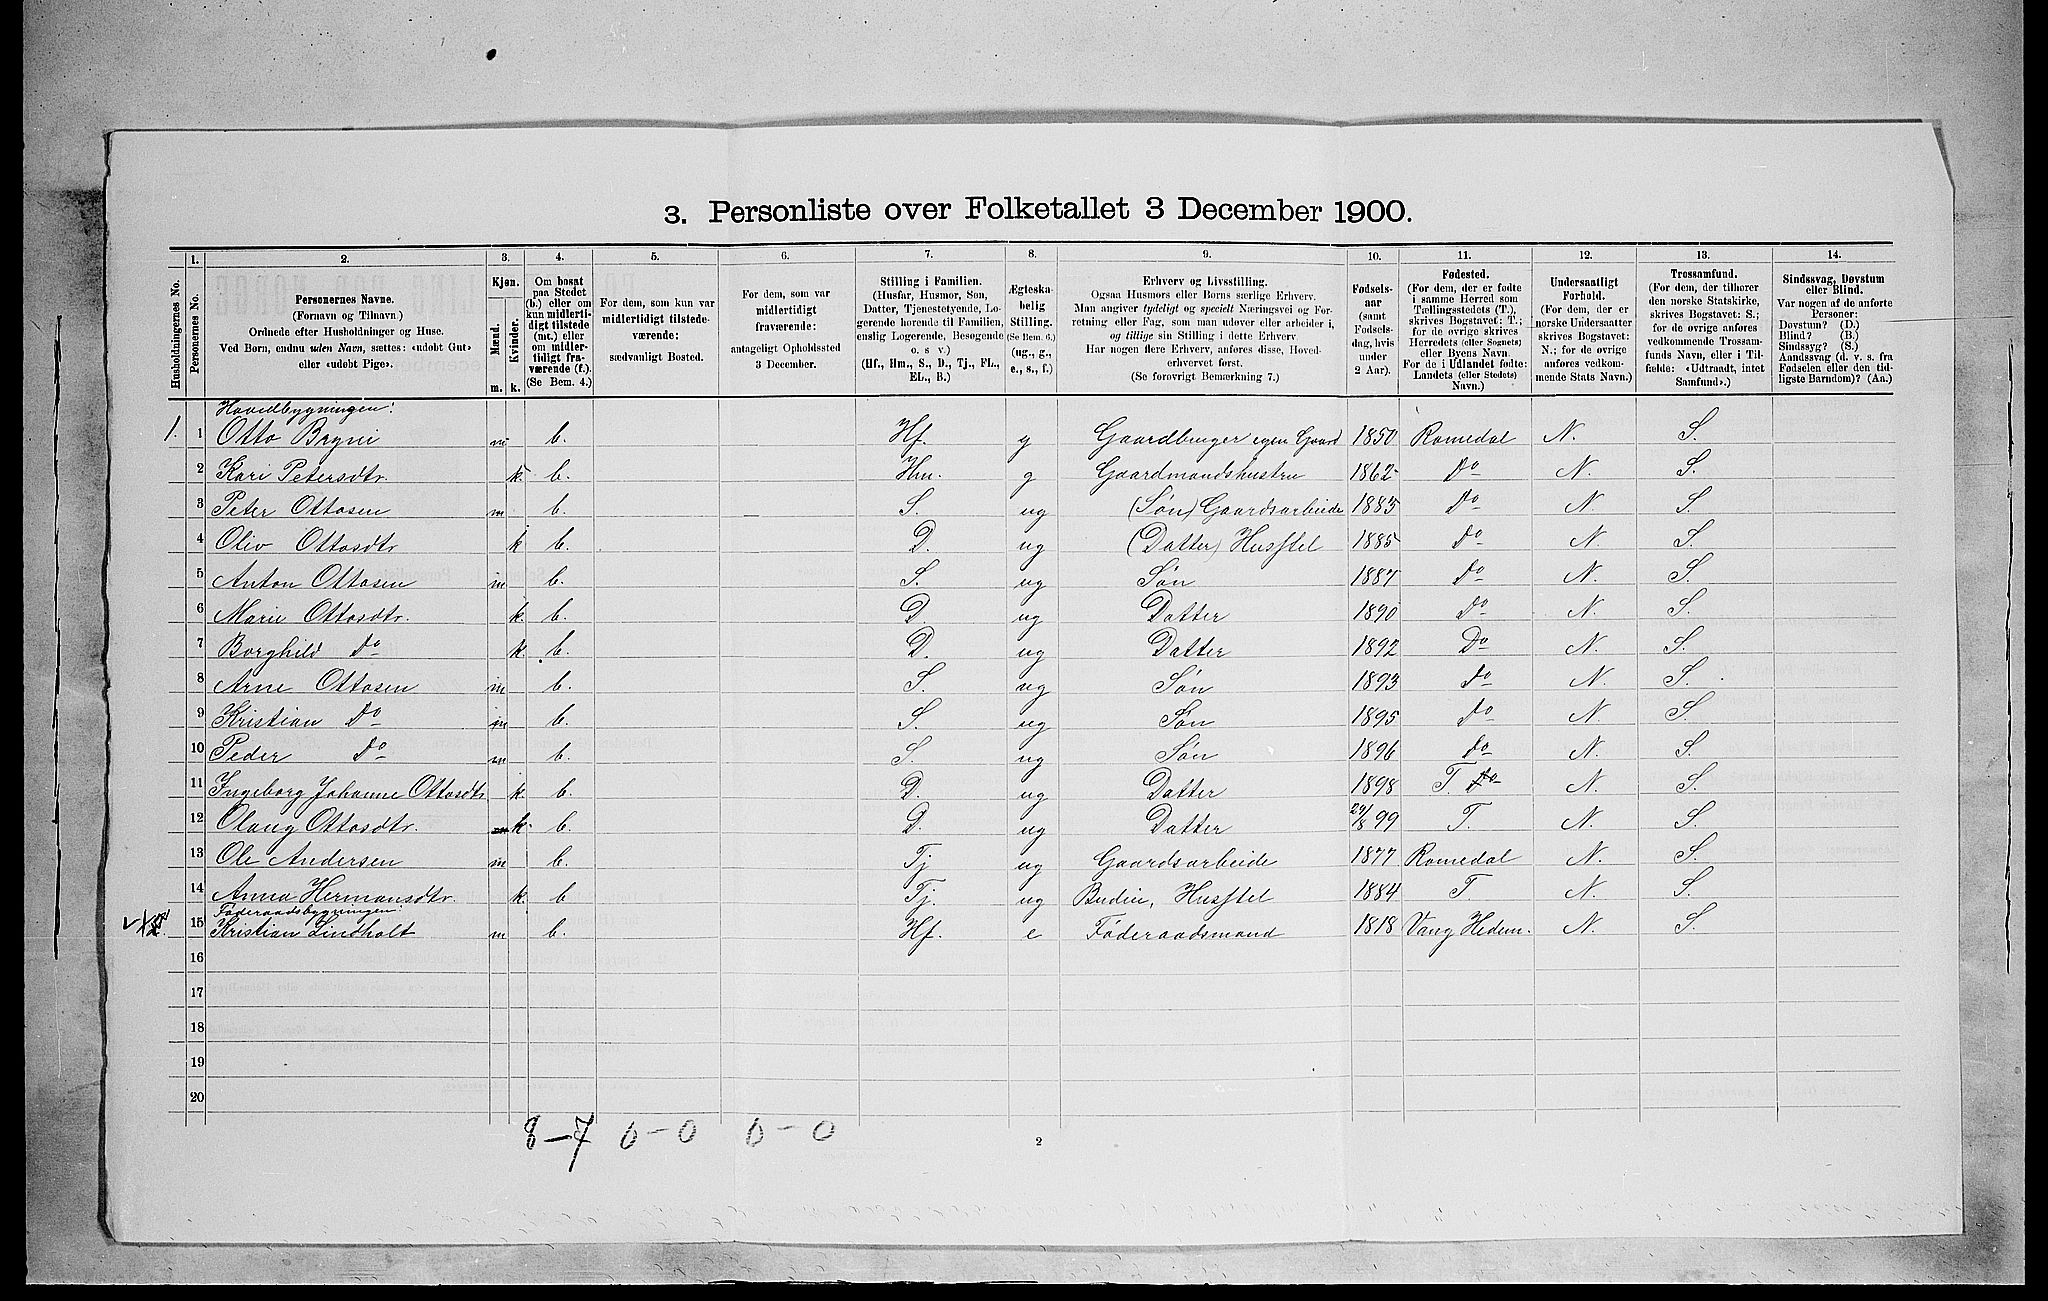 3. Personliste over Folketallet 3 December 1900.
Husholdningernes No.
1. Personernes No.
2. Personernes Navne.
(Fornavn og Tilnavn.)
Ordnede efter Husholdninger og Huse.
Ved Børn, endnu uden Navn, sættes: «udøbt Gut»
eller «udøbt Pige».
3. Kjøn.
Mænd. m.
Kvinder. k.
4. Om bosat
paa Stedet
(b.) eller om
kun midlerti-
digt tilstede
(mt.) eller
om midler-
tidigt fra-
værende (f.).
(Se Bem. 4.)
5. For dem, som kun var
midlertidigt tilstede-
værende:
sædvanligt Bosted.
6. For dem, som var
midlertidigt
fraværende:
antageligt Opholdssted
3 December.
7. Stilling i Familien.
(Husfar, Husmor, Søn,
Datter, Tjenestetyende, Lo-
gerende hørende til Familien,
enslig Logerende, Besøgende
o. s. v.)
(Hf., Hm., S., D., Tj., FL.,
EL., B.)
8. Ægteska-
belig
Stilling.
(Se Bem. 6.)
(ug., g.,
e., s., f.)
9. Erhverv og Livsstilling.
Ogsaa Husmors eller Børns særlige Erhverv.
Man angiver tydeligt og specielt Næringsvei og For-
retning eller Fag, som man udøver eller arbeider i,
og tillige sin Stilling i dette Erhverv.
Har nogen flere Erhverv, anføres disse, Hoved-
erhvervet først.
(Se forøvrigt Bemærkning 7.)
10. Fødsels-
aar
(samt
Fødsels-
dag, hvis
under
2 Aar).
11. Fødested.
(For dem, der er fødte
i samme Herred som
Tællingsstedets (T.),
skrives Bogstavet: T.;
for de øvrige skrives
Herredets (eller Sognets)
eller Byens Navn.
For de i Udlandet fødte:
Landets (eller Stedets)
Navn.)
12. Undersaatligt
Forhold.
(For dem, der er
norske Undersaatter
skrives Bogstavet:
N.; for de øvrige
anføres vedkom-
mende Stats Navn.)
13. Trossamfund.
(For dem, der tilhører
den norske Statskirke,
skrives Bogstavet: S.;
for de øvrige anføres
vedkommende Trossam-
funds Navn, eller i Til-
fælde: «Udtraadt, intet
Samfund».)
14. Sindssvag, Døvstum
eller Blind.
Var nogen af de anførte
Personer:
Døvstum? (D.)
Blind? (B.)
Sindssyg? (S.)
Aandssvag (d. v. s. fra
Fødselen eller den tid-
ligste Barndom)? (Aa.)
Hovedbygningen:
1. 1 Otto Bryni m b. Hf. g Gaardbruger egen Gaard 1850 Romedal N. S.
2 Kari Petersdtr. k. b. Hm. g Gaardmandshustru 1862 Do N. S.
3 Peter Ottosen m b. S. ug (Søn) Gaardsarbeide 1883 Do N. S.
4 Oliv Ottosdtr k b. D. ug (Datter) Husstel 1885 Do N. S.
5 Anton Ottosen m b. S. ug Søn 1887 Do N. S.
6 Marie Ottosdtr. k. b. D. ug Datter 1890 Do N. S.
7 Borghild Do k. b. D. ug Datter 1892 Do N. S.
8 Arne Ottosen m b. S. ug Søn 1893 Do N. S.
9 Kristian Do m b. S. ug Søn 1895 Do N. S.
10 Peder Do m b. S. ug Søn 1896 Do N. S.
11 Ingeborg Johanne Ottosdtr k. b. D. ug Datter 1898 T. Do N. S.
12 Olaug Ottosdtr. m k. b. D. ug Datter 29/8 99 T. N. S.
13 Ole Andersen m b. Tj ug Gaardsarbeide 1877 Romedal N. S.
14 Anna Hermansdtr. k. b Tj. ug Budeie, Husstel 1884 T. N. S.
Føderaadsbygningen:
15 Kristian Lindholt m b. Hf. e Føderaadsmand 1818 Vang Hedem. N. S.
16
17
18
19
20
8-7 0-0 0-0
2